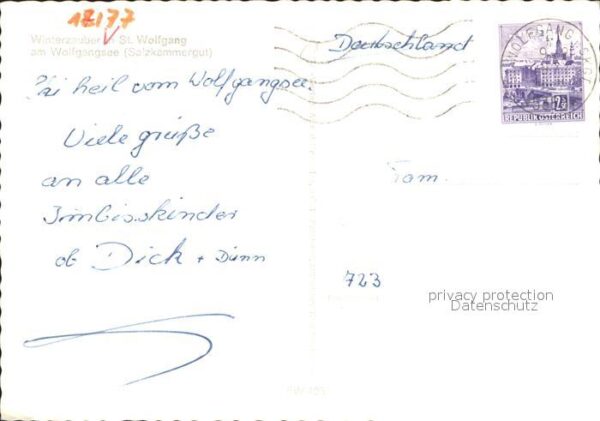 12/77
Winterzauber in St. Wolfgang
am Wolfgangsee (Salzkammergut)
Deutschland
WOLFGANG
REPUBLIK ÖSTERREICH
Schi heil vom Wolfgangsee.
Viele grüße
an alle
Imbisskinder
ob Dick + Dünn
Fam.
723
privacy protection
Datenschutz